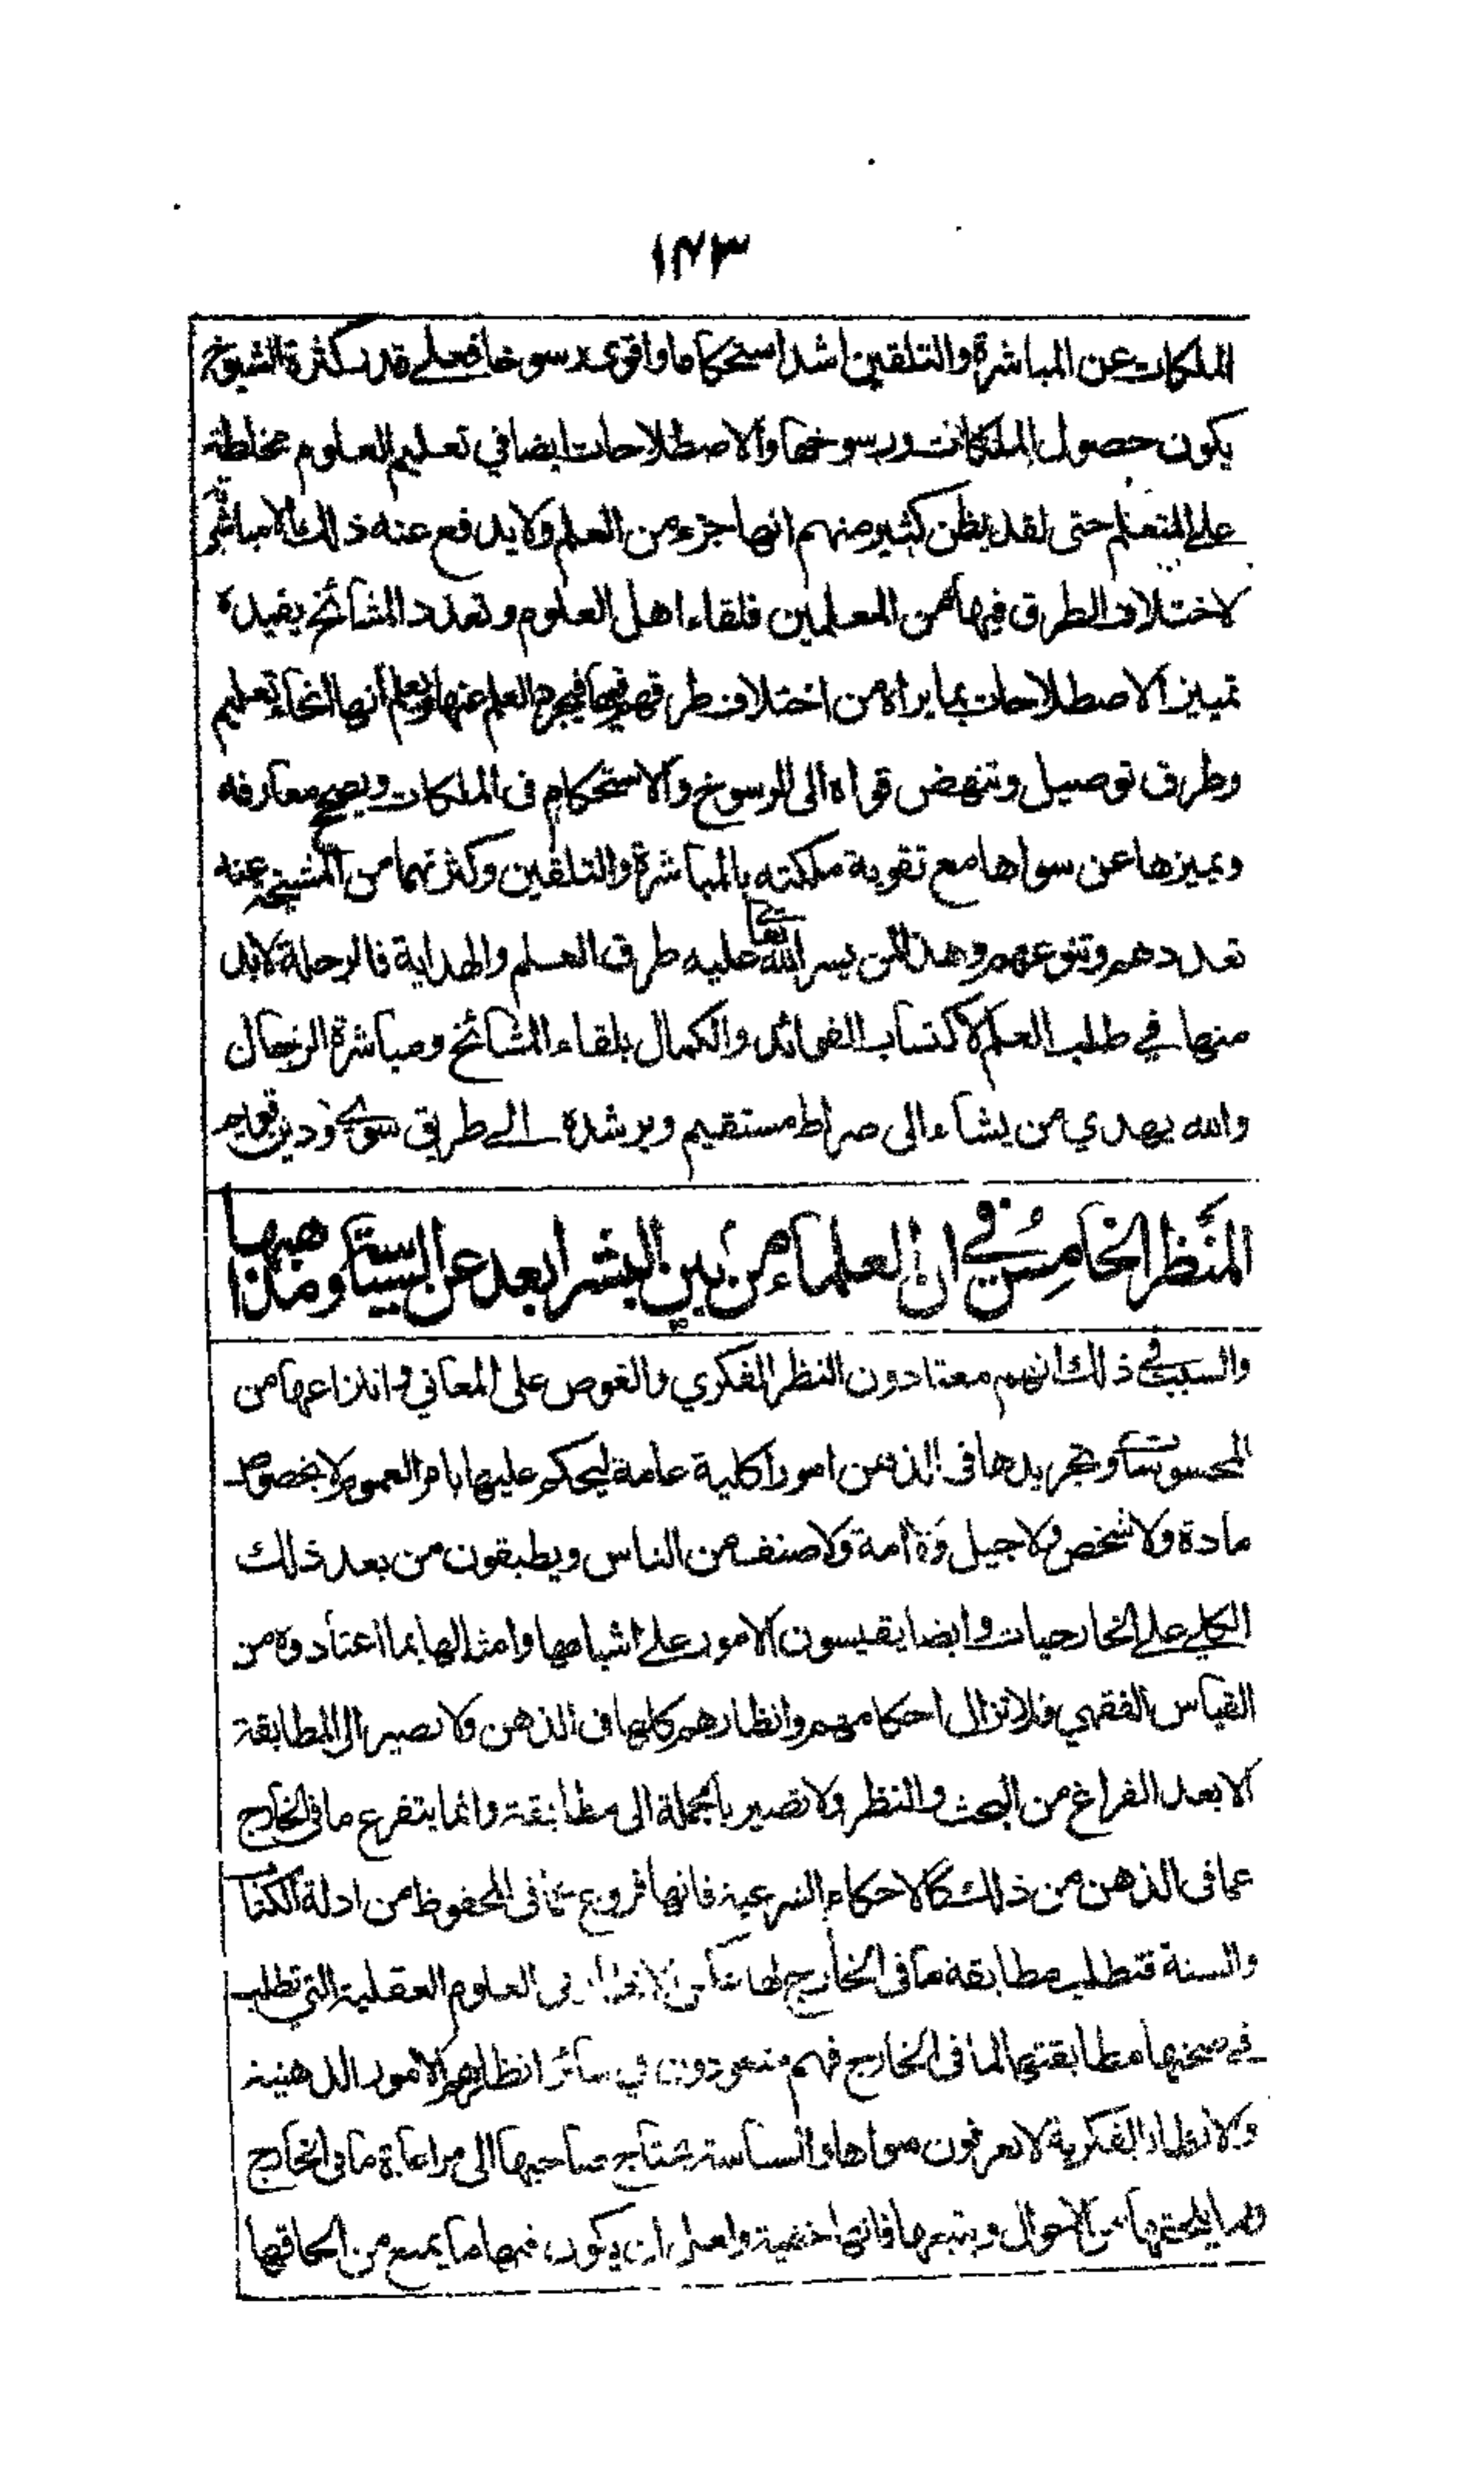 ١٤٣
الملكات عن المباشرة والتلقين اشد استحكاما واقوى رسوخا فعلے قدر كثرة الشيوخ
يكون حصول الملكات ورسوخها والاصطلاحات ايضا في تعليم العلوم مخلطة
علے المتعلم حتى لقد يظن كثير منهم انها جزء من العلم ولا يدفع عنه ذلك الا مباشرته
لاختلاف الطرق فيها من المعلمين فلقاء اهل العلوم وتعدد المشائخ يفيده
تمييز الاصطلاحات بما يراه من اختلاف طرقهم فيها فيجرد العلم عنها ويعلم انها انحاء تعليم
وطرق توصيل وتنهض قواه الى الرسوخ والاستحكام فى الملكات ويصحح معارفه
ويميزها عن سواها مع تقوية ملكته بالمباشرة والتلقين وكثرتهما من المشيخة عند
تعددهم وتنوعهم وهذا لمن يسر الله تعالے عليه طرق العلم والهداية فالرحلة لا بد
منها في طلب العلم لاكتساب الفوائد والكمال بلقاء المشائخ ومباشرة الرجال
والله يهدي من يشاء الى صراط مستقيم ويرشده الے طريق سوي ودين قويم
المنظر الخامس في ان العلماء من بين البشر ابعد عن السياسة ومذاهبها
والسبب في ذلك انهم معتادون النظر الفكري والغوص على المعاني وانتزاعها من
المحسوسات وتجريدها فى الذهن امورا كلية عامة ليحكم عليها بامر العموم لا بخصوص
مادة ولا شخص ولا جيل ولا امة ولا صنف من الناس ويطبقون من بعد ذلك
الكلي علے الخارجيات وايضا يقيسون الامور علے اشباهها وامثالها بما اعتادوه من
القياس الفقهي فلا تزال احكامهم وانظارهم كلها فى الذهن ولا تصير الى المطابقة
الا بعد الفراغ من البحث والنظر ولا تصير بالجملة الى مطابقة وانما يتفرع ما فى الخارج
عما فى الذهن من ذلك كالاحكام الشرعية فانها فروع عما فى المحفوظ من ادلة الكتاب
والسنة فتطلب مطابقة ما فى الخارج لها عكس الانظار في العلوم العقلية التي تطلب
في صحتها مطابقتها لما فى الخارج فهم متعودون في سائر انظارهم الامور الذهنية
والانظار الفكرية لا يعرفون سواها والسياسة يحتاج صاحبها الى مراعاة ما فى الخارج
وما يلحقها من الاحوال ويتبعها فانها خفية ولعل ان يكون فيها ما يمنع من الحاقها